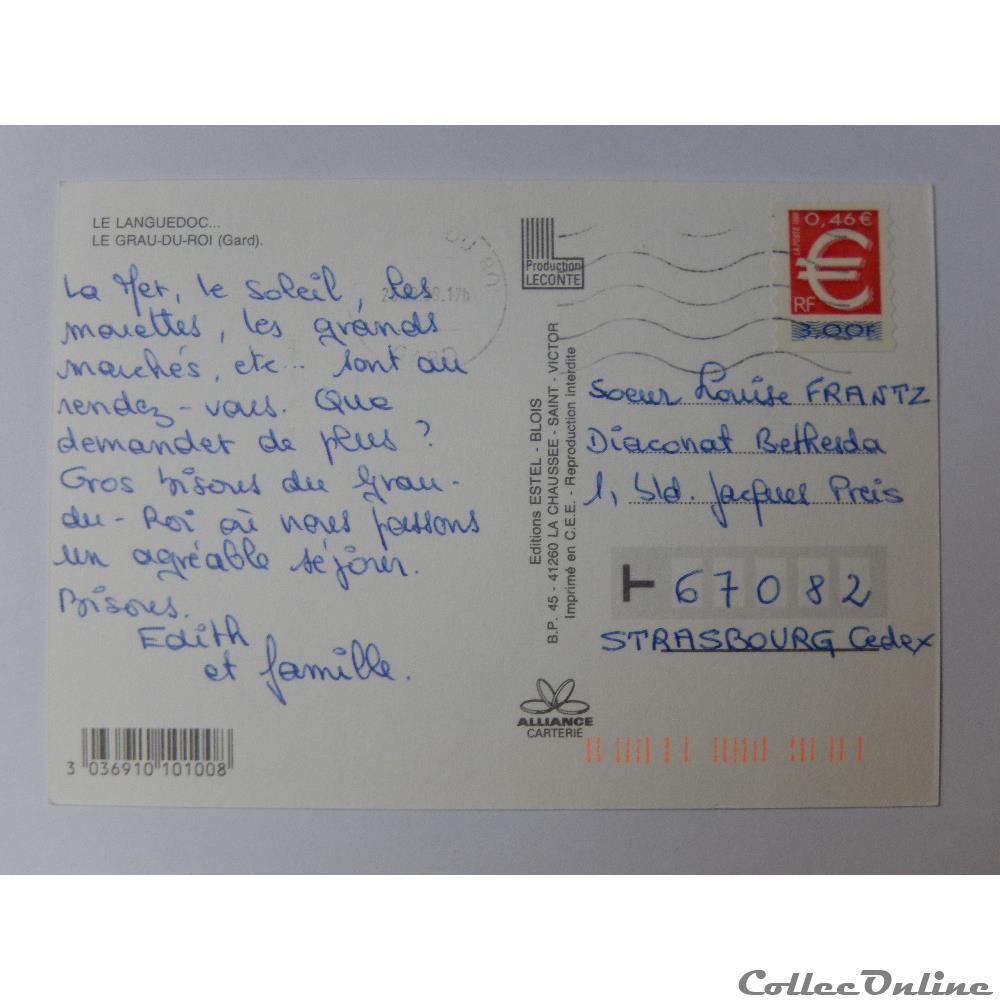 LE LANGUEDOC...
LE GRAU-DU-ROI (Gard).
La Mer, le soleil, les
mouettes, les grands
marchés, etc... sont au
rendez-vous. Que
demander de plus ?
Gros bisous du Grau-
du-Roi où nous passons
un agréable séjour.
Bisous.
Edith
et famille.
3 036910 101008
Production
LECONTE
Editions ESTEL - BLOIS
B.P. 45 - 41260 LA CHAUSSEE - SAINT - VICTOR
Imprimé en C.E.E. - Reproduction interdite
ALLIANCE
CARTERIE
0,46 €
LA POSTE 1999
€
RF
3,00F
Soeur Louise FRANTZ
Diaconat Bethesda
1, bld. Jacques Preis
67082
STRASBOURG Cedex
CollecOnline